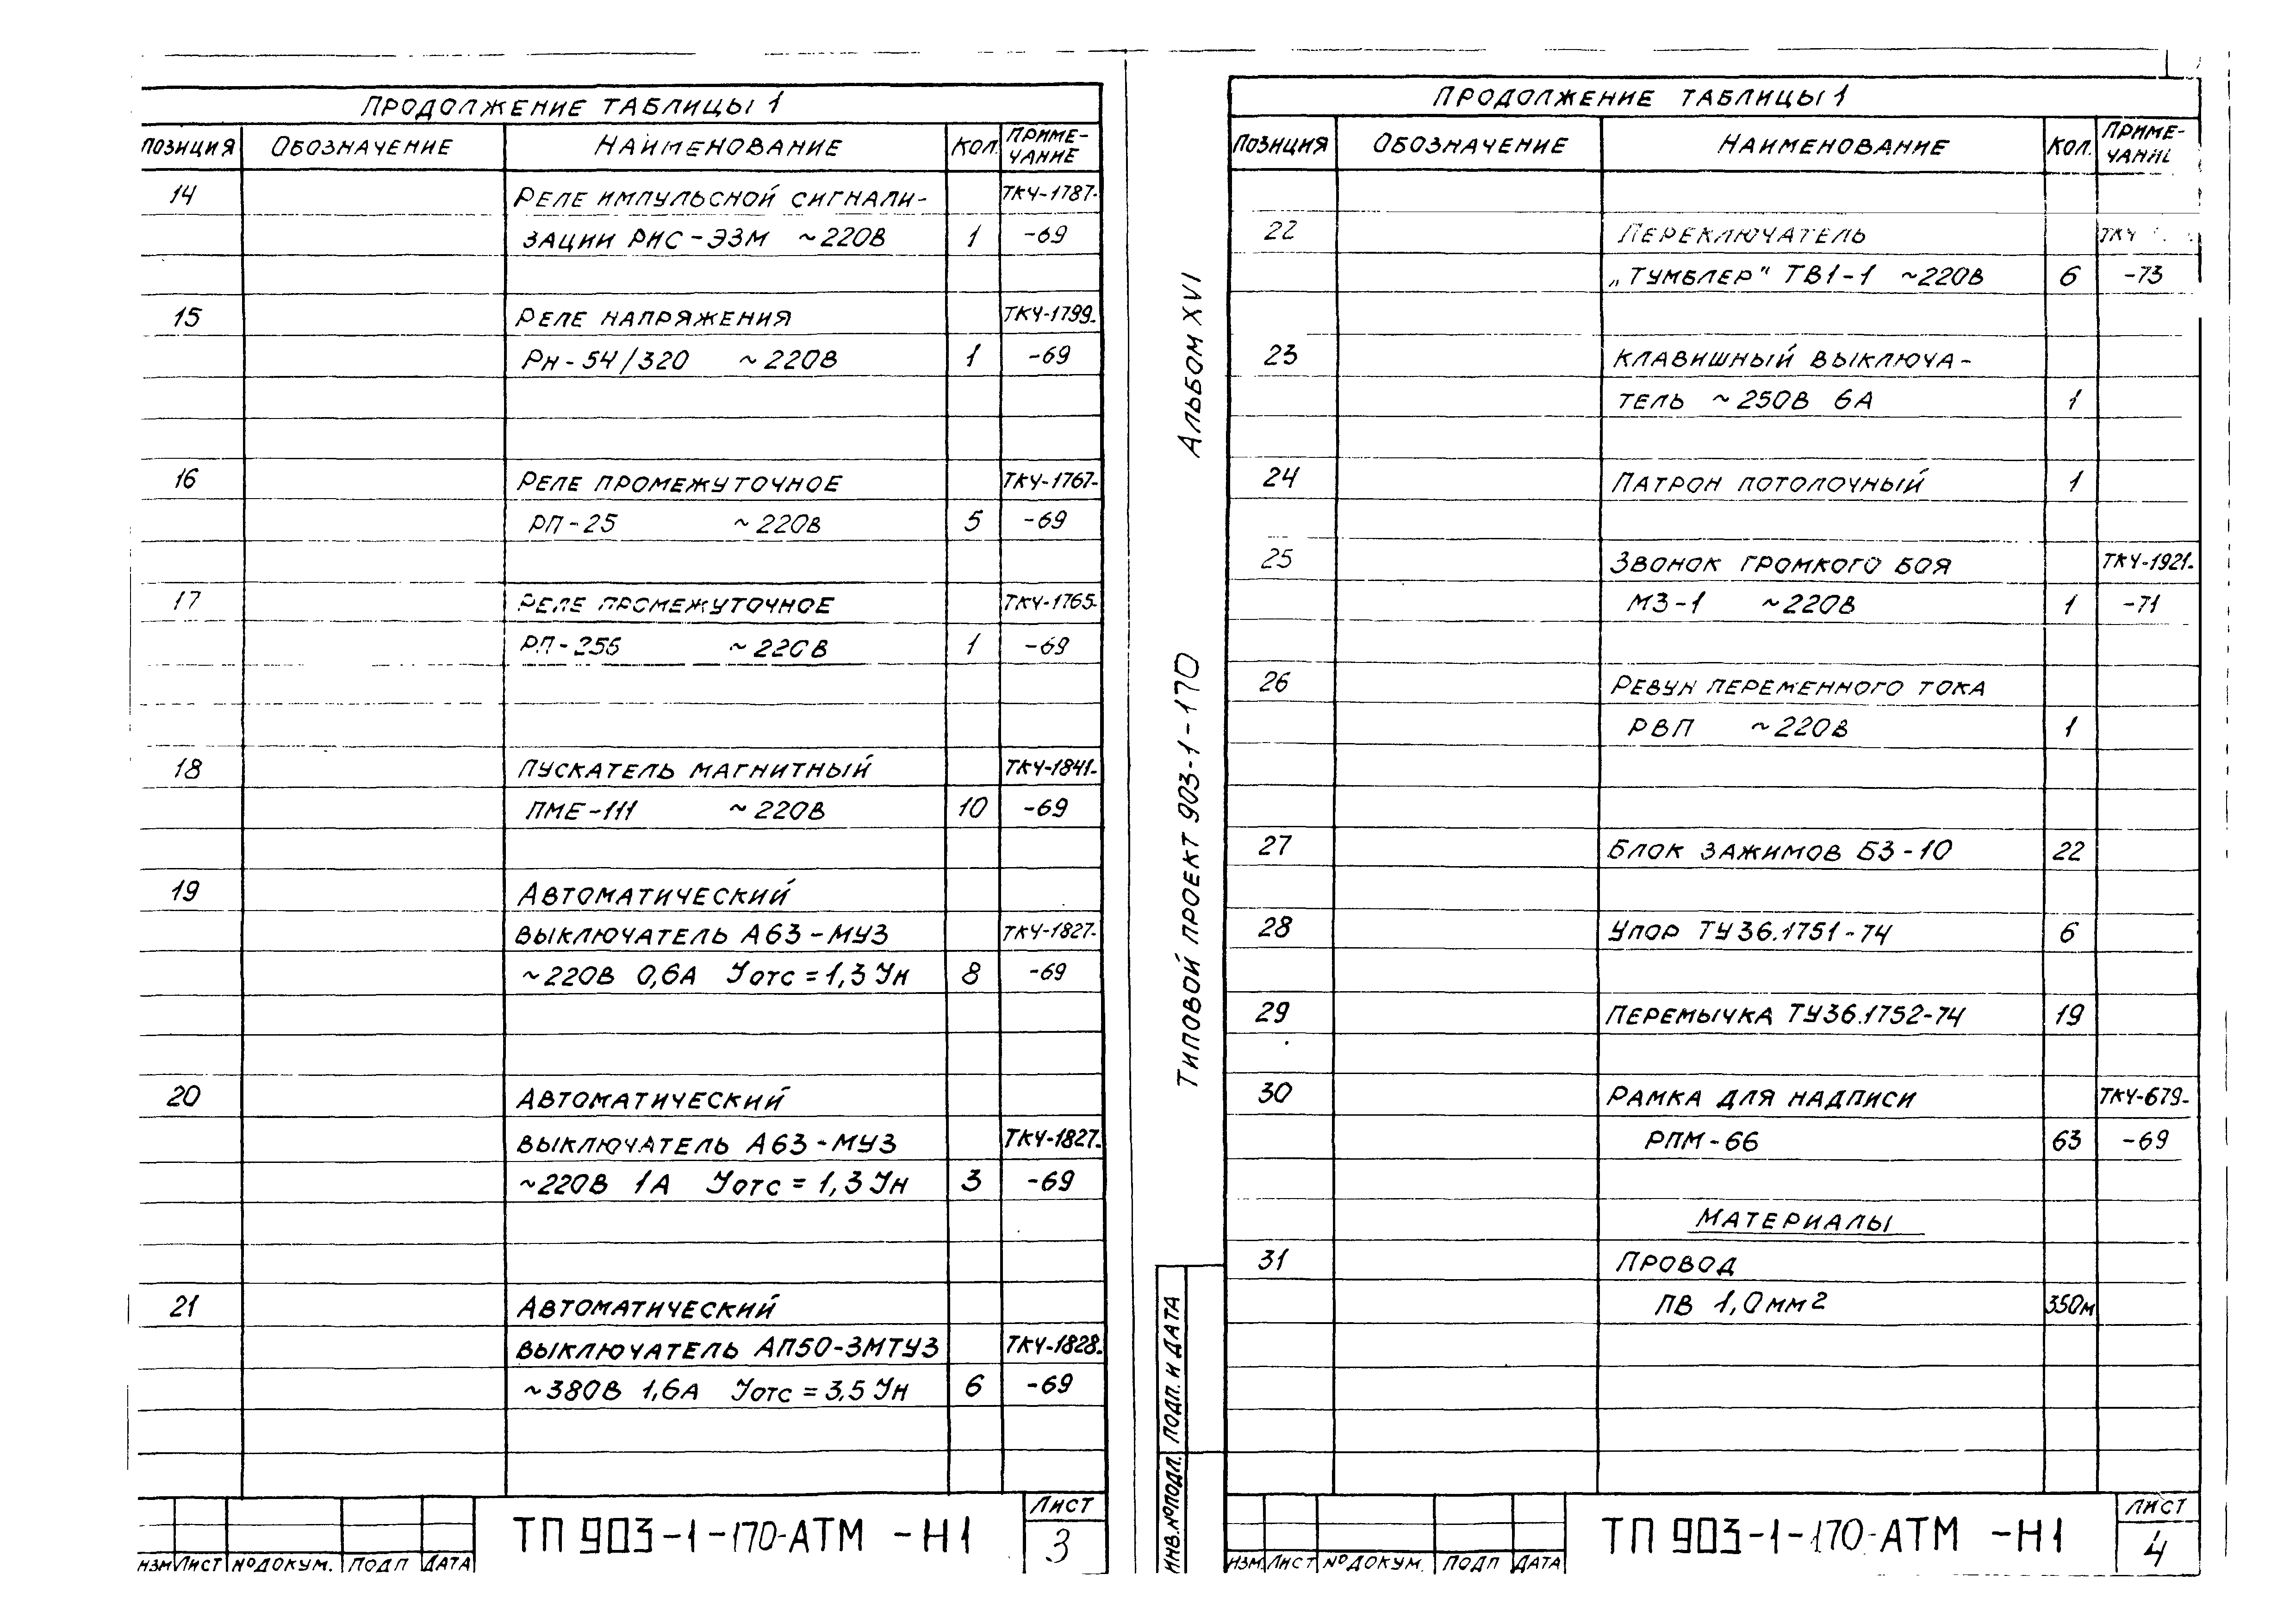 ПРОДОЛЖЕНИЕ ТАБЛИЦЫ 1
ПОЗИЦИЯ ОБОЗНАЧЕНИЕ НАИМЕНОВАНИЕ КОЛ. ПРИМЕ-
ЧАНИЕ
14 РЕЛЕ ИМПУЛЬСНОЙ СИГНАЛИ- ТКЧ-1787-
ЗАЦИИ РИС-ЭЗМ ~220В 1 -69
15 РЕЛЕ НАПРЯЖЕНИЯ ТКЧ-1799-
РН-54/320 ~220В 1 -69
16 РЕЛЕ ПРОМЕЖУТОЧНОЕ ТКЧ-1767-
РП-25 ~220В 5 -69
17 РЕЛЕ ПРОМЕЖУТОЧНОЕ ТКЧ-1765-
РП-256 ~220В 1 -69
18 ПУСКАТЕЛЬ МАГНИТНЫЙ ТКЧ-1841-
ПМЕ-111 ~220В 10 -69
19 АВТОМАТИЧЕСКИЙ
ВЫКЛЮЧАТЕЛЬ А63-МУ3 ТКЧ-1827-
~220В 0,6А Уотс=1,3Ун 8 -69
20 АВТОМАТИЧЕСКИЙ
ВЫКЛЮЧАТЕЛЬ А63-МУ3 ТКЧ-1827-
~220В 1А Уотс=1,3Ун 3 -69
21 АВТОМАТИЧЕСКИЙ
ВЫКЛЮЧАТЕЛЬ АП50-3МТУ3 ТКЧ-1828-
~380В 1,6А Уотс=3,5Ун 6 -69
ИЗМ ЛИСТ №ДОКУМ. ПОДП ДАТА
ТП 903-1-170-АТМ -Н1
ЛИСТ
3
АЛЬБОМ XVI
ТИПОВОЙ ПРОЕКТ 903-1-170
ИНВ.№ПОДЛ. ПОДП. И ДАТА
ПРОДОЛЖЕНИЕ ТАБЛИЦЫ 1
ПОЗИЦИЯ ОБОЗНАЧЕНИЕ НАИМЕНОВАНИЕ КОЛ. ПРИМЕ-
ЧАНИЕ
22 ПЕРЕКЛЮЧАТЕЛЬ ТКЧ
„ТУМБЛЕР" ТВ1-1 ~220В 6 -73
23 КЛАВИШНЫЙ ВЫКЛЮЧА-
ТЕЛЬ ~250В 6А 1
24 ПАТРОН ПОТОЛОЧНЫЙ 1
25 ЗВОНОК ГРОМКОГО БОЯ ТКЧ-1921-
МЗ-1 ~220В 1 -71
26 РЕВУН ПЕРЕМЕННОГО ТОКА
РВП ~220В 1
27 БЛОК ЗАЖИМОВ БЗ-10 22
28 УПОР ТУ36.1751-74 6
29 ПЕРЕМЫЧКА ТУ36.1752-74 19
30 РАМКА ДЛЯ НАДПИСИ ТКЧ-679-
РПМ-66 63 -69
МАТЕРИАЛЫ
31 ПРОВОД
ПВ 1,0мм2 350м
ИЗМ. ЛИСТ №ДОКУМ. ПОДП ДАТА
ТП 903-1-170-АТМ -Н1
ЛИСТ
4